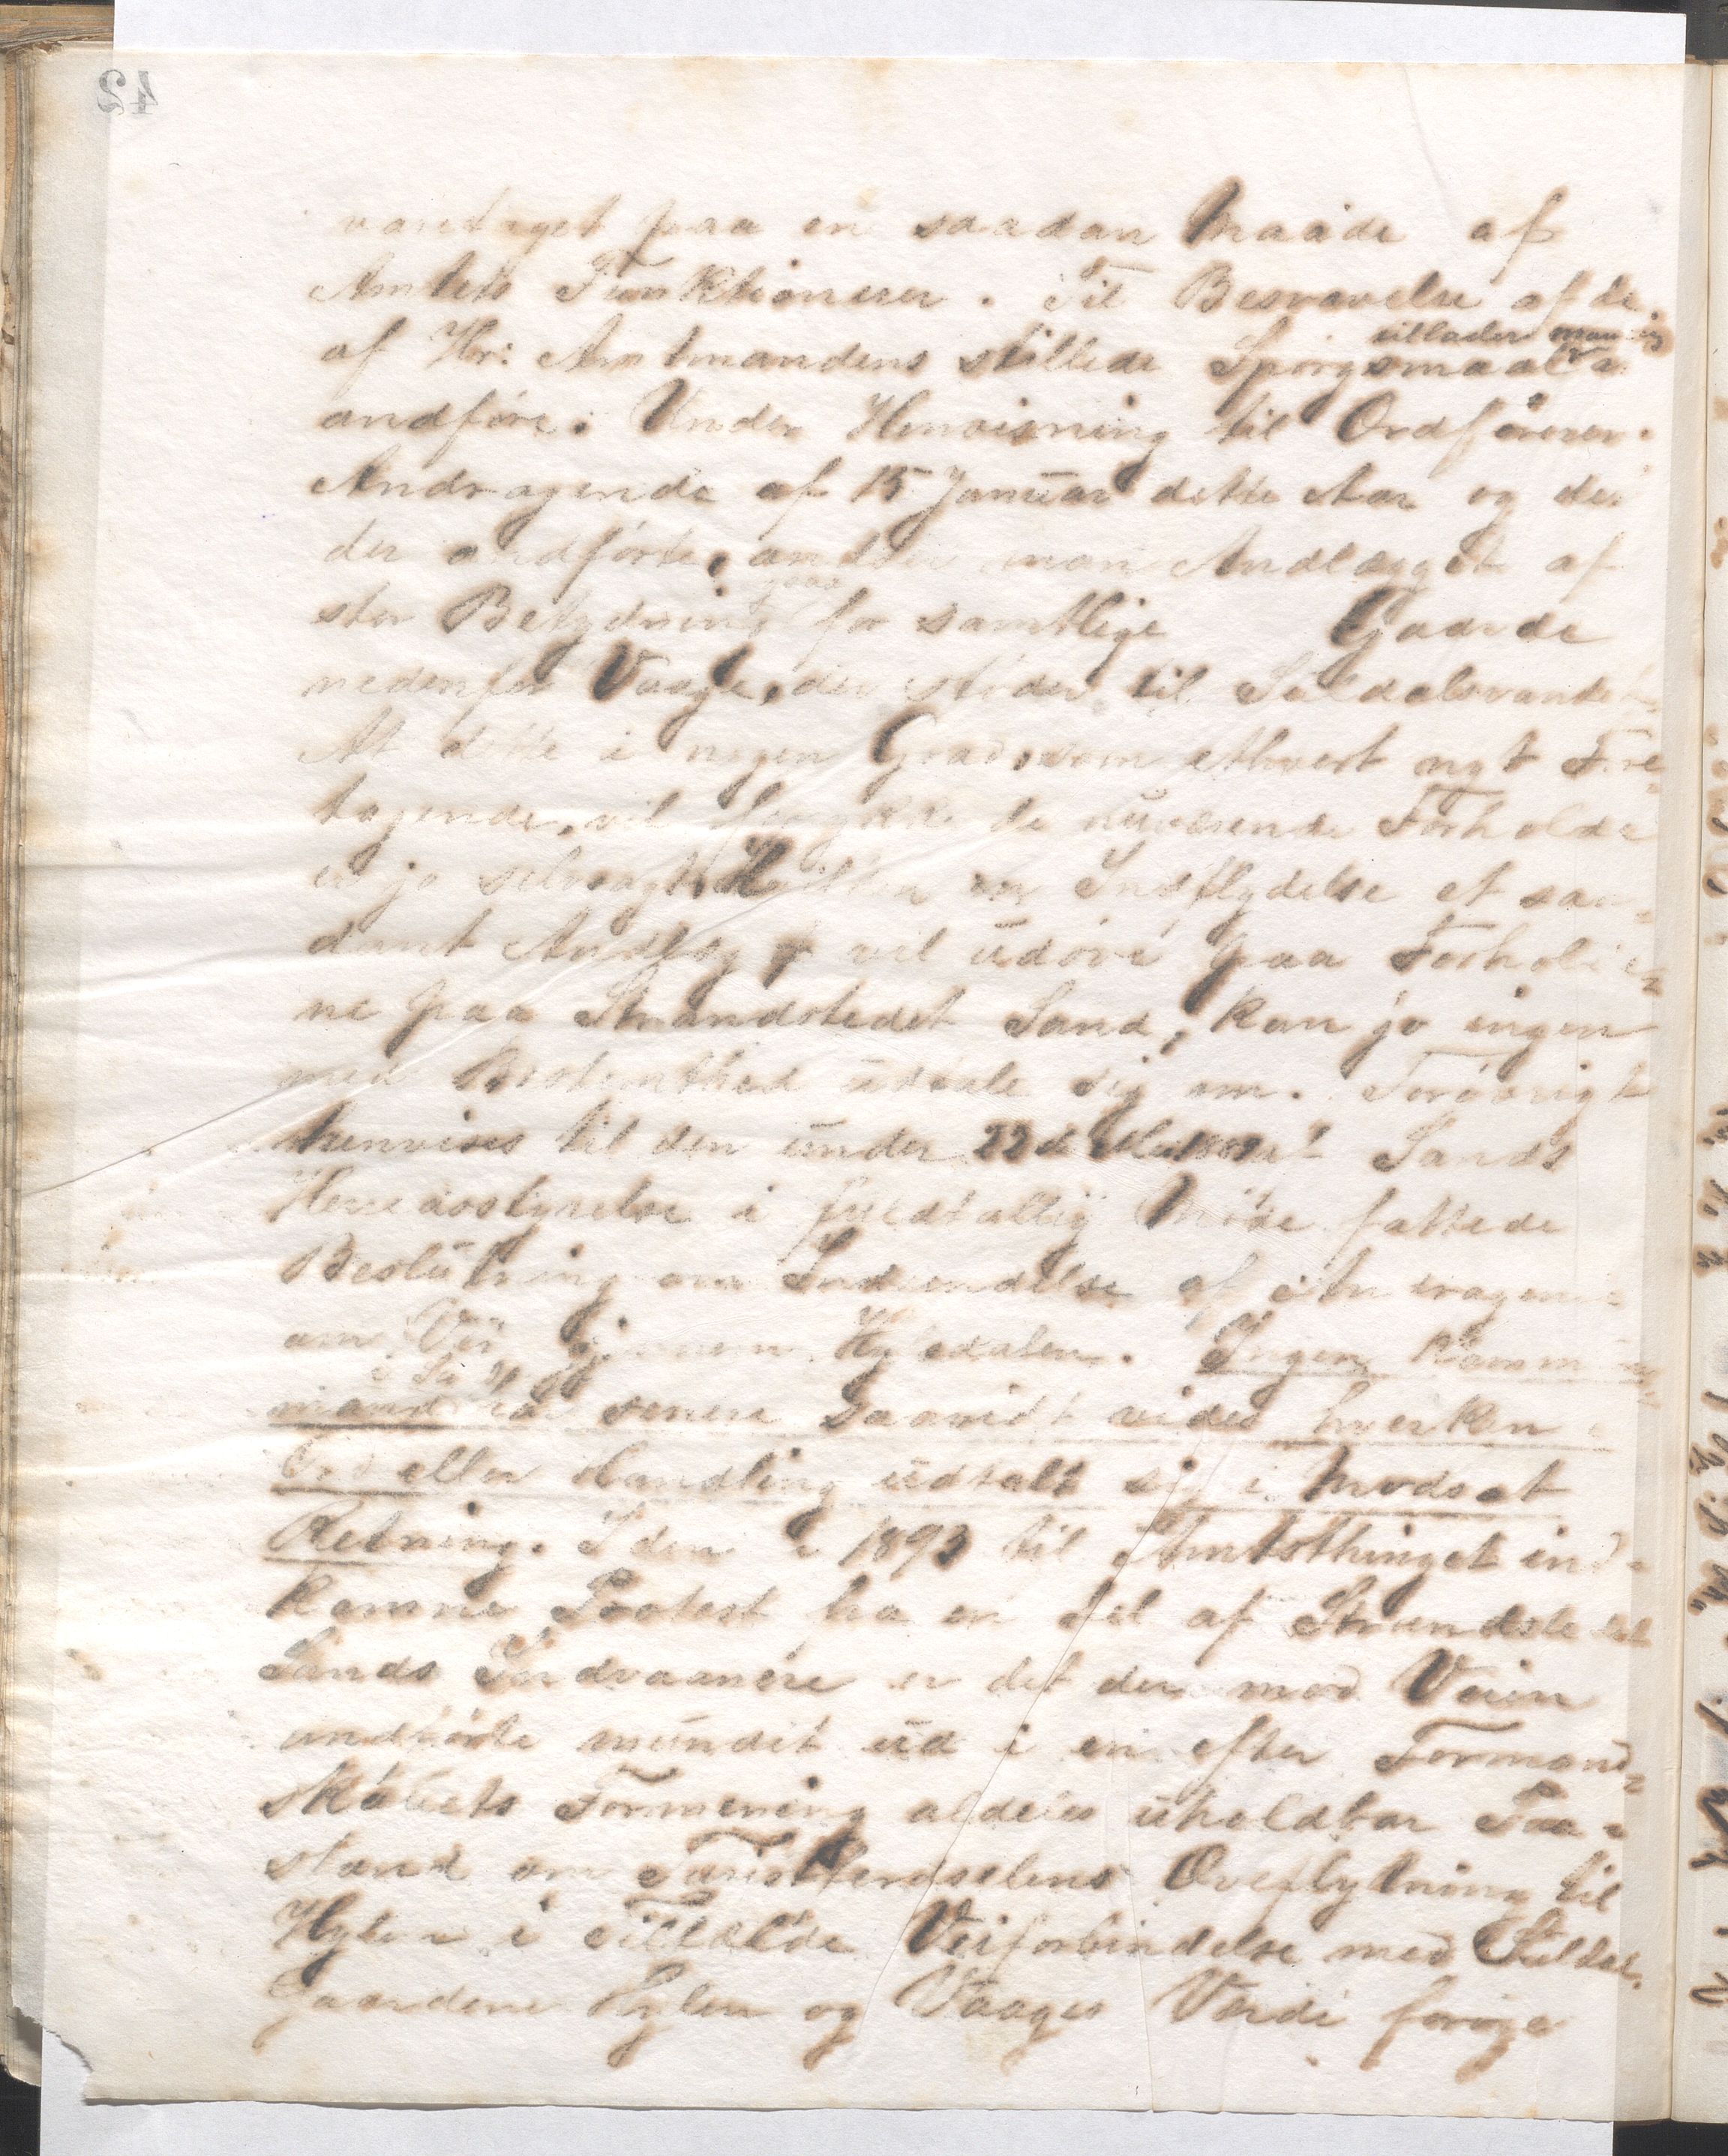 42
varetaget paa en saadan Maade af
Amtets Funktionerer. Til Besvarelse af de
af Hr: Amtmandens stillede Spørgsmaal
utlader man sig
andføre: Under Henvisning til Ordførerens
Andragende af 15 Januar dette Aar og det
der andførte, anser man Andlægget af
stor Betydning for samtlige Gaarde
nedenfor Vaage, der støder til Suldalsvandet.
At dette i nogen Grad, som ethvert nyt Fore-
tagende, vil de nuværende Forholde
er jo selvsagt. Hvilken en Indflydelse et saa-
dant Andlæg vil udøve paa Forholde-
ne paa Strandstedet Sand, kan jo ingen
med Bestemthed udtale sig om. Forøvrigt
henvises til den under 22de af Sands
Herredsstyrelse i fuldtallig Møde fattede
Beslutning om Indsendelse af Andragende
om Vei gjennem Hylsdalen. Ingen Kommune-
mand har senere saavidt vides hverken i
Ord eller Handling udtalt sig i modsat
Retning. I den i 1893 til Amtsthinget ind-
komne Protest fra en Del af Strandstedet
Sands Indvaanere er det der mod Veien
andførte mundet ud i en efter Formand-
skabets Formening aldeles uholdbar Paa-
stand om Turistferdselens Overflytning til
Hylen i Tilfælde Veiforbindelse med Suldal.
Gaardene Hylen og Vaages Værdi forøge